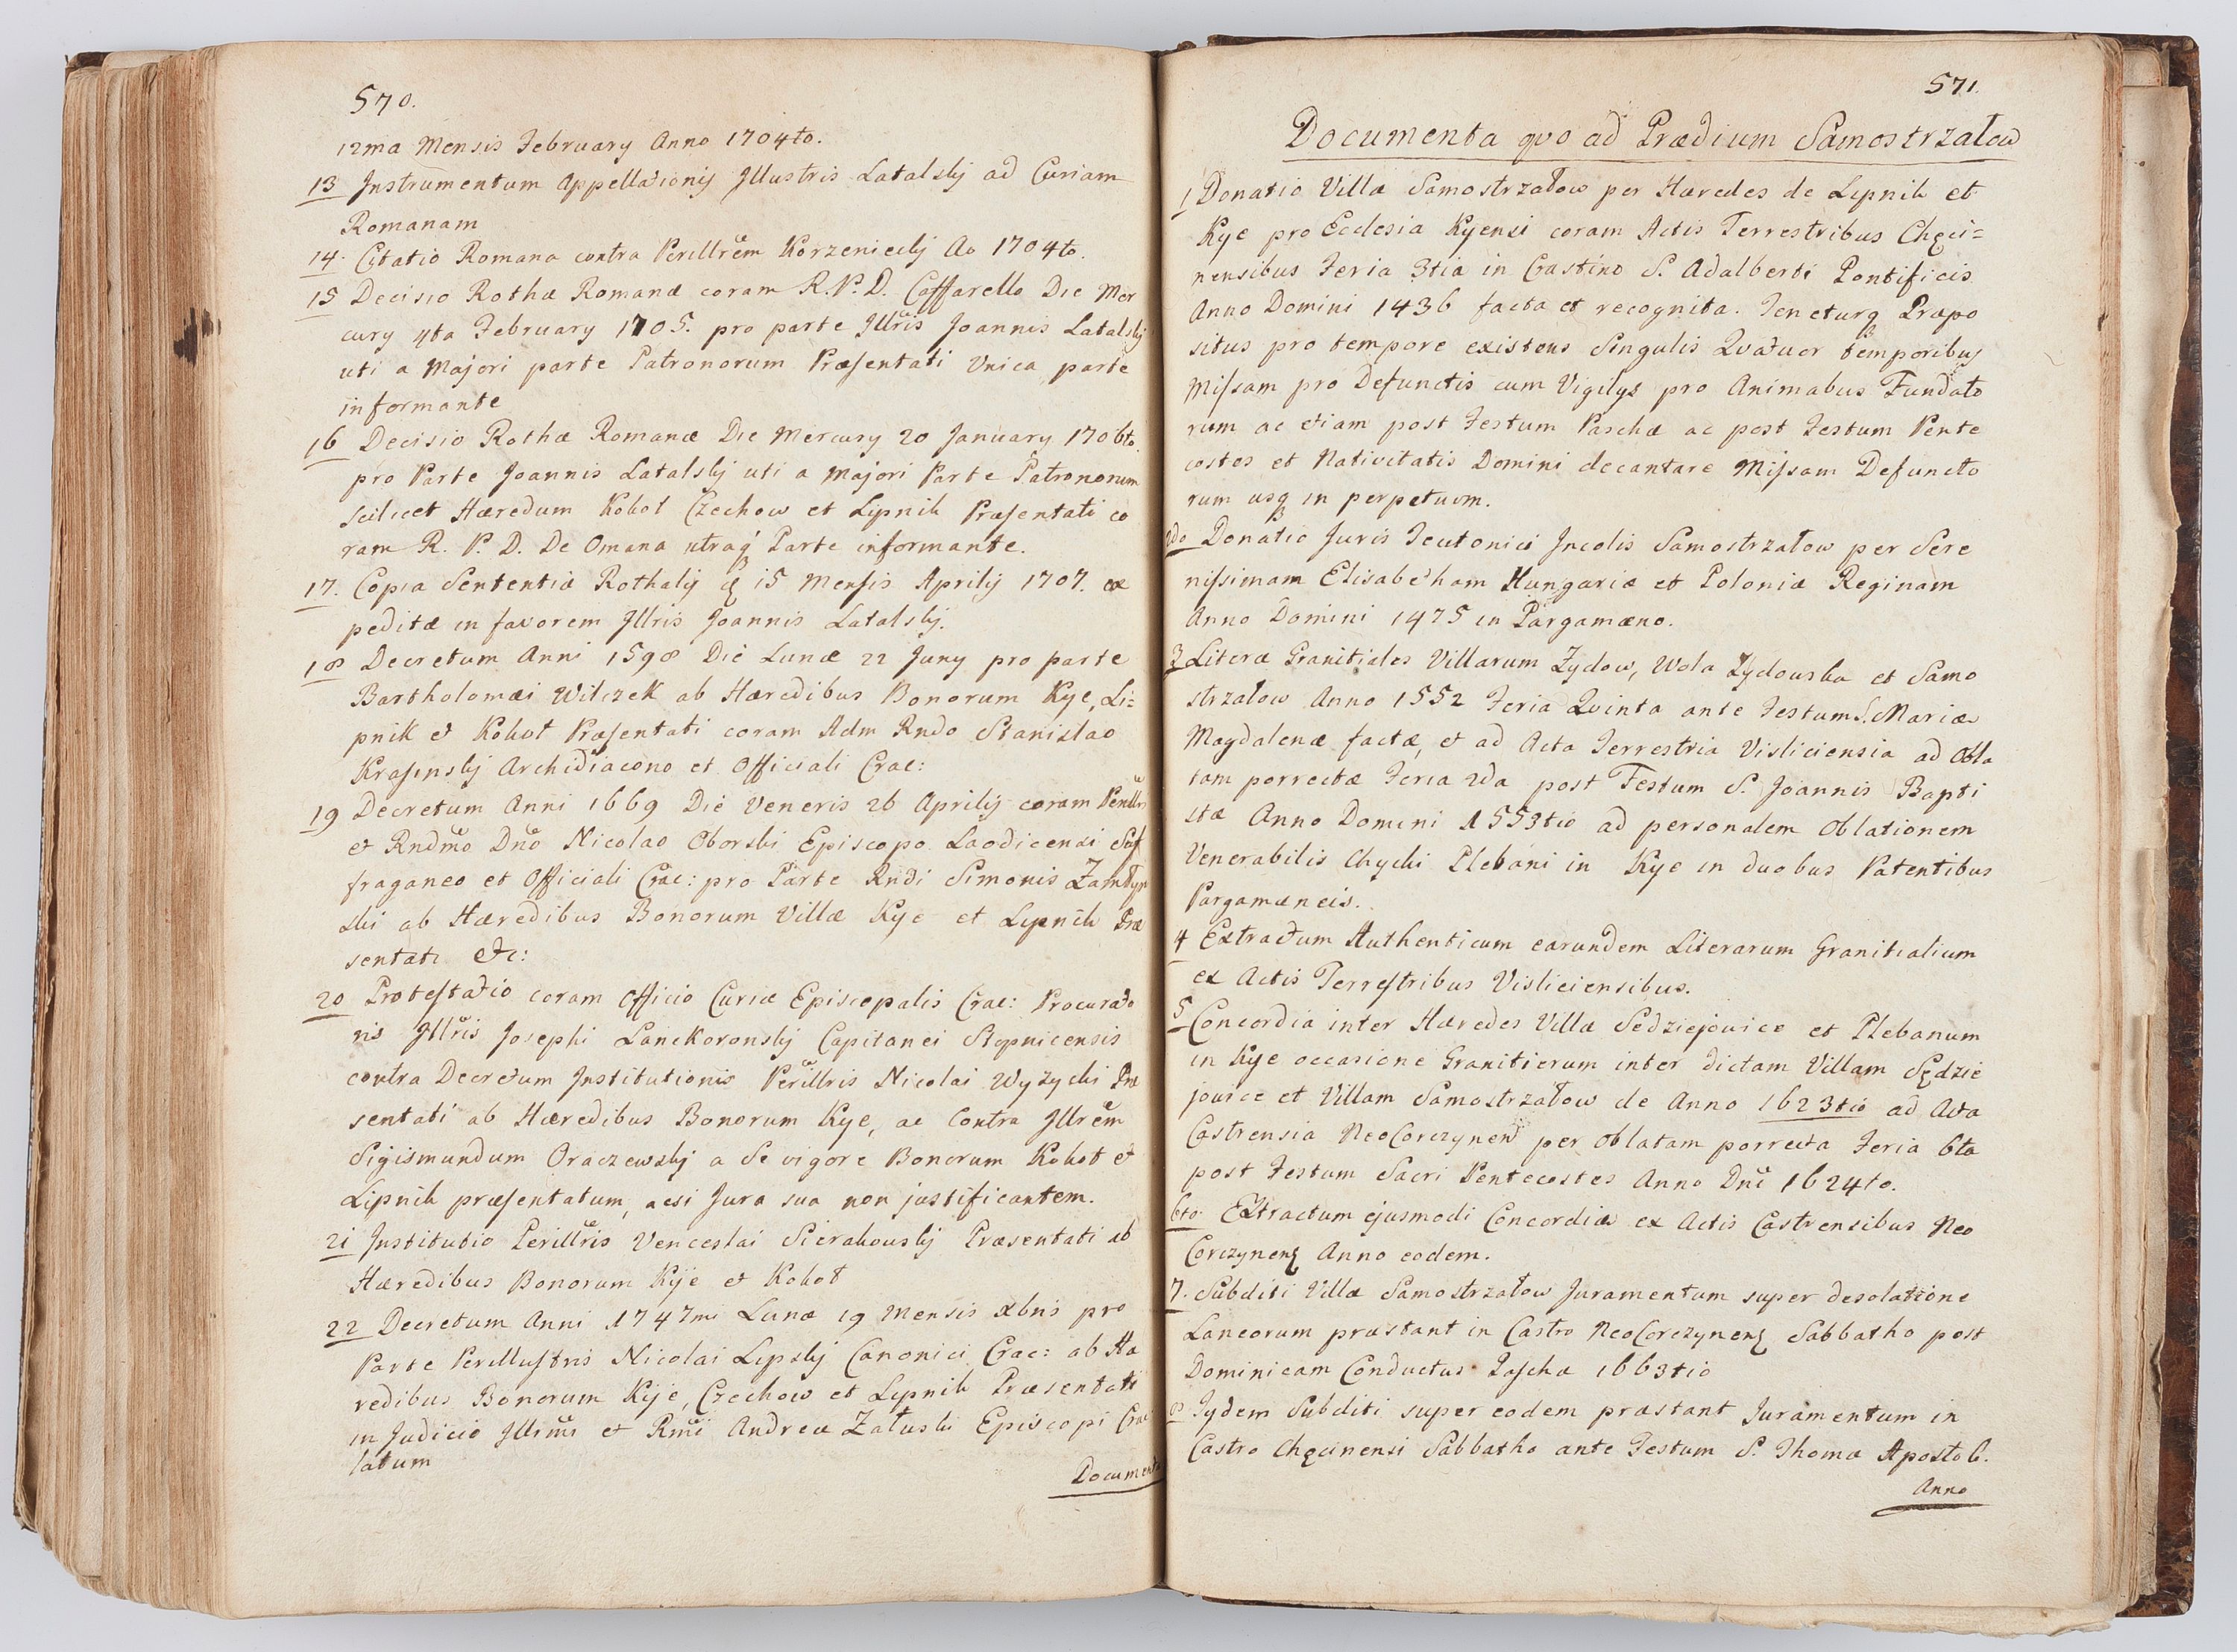 570.
12ma Mensis February Anno 1704to.
13 Instrumentum Appellationis Illustris Latalskj ad Curiam
Romanam
14. Citatio Romana contra Perillrem Korzenieckj Ao 1704to.
15 Decisio Rothæ Romanæ coram R. P. D. Caffarello Die Mer
cury 4ta February 1705. pro parte Illris Joannis Latalskj
uti a Majori parte Patronorum Præsentati Unica parte
informante
16 Decisio Rothæ Romanæ Die Mercury 20 January 1706to.
pro Parte Joannis Latalskj uti a Majori Parte Patronorum
scilicet Hæredum Kokot Czechow et Lipnik Præsentati co
ram R. P. D. De Omana utraq Parte informante.
17. Copia Sententiæ Rothalij 15 Mensis Aprilij 1707. ex
peditæ in favorem Illris Joannis Latalskj.
18 Decretum Anni 1598 Die Lunæ 22 Juny pro parte
Bartholomæi Wilczek ab Hæredibus Bonorum Kye, Li=
pnik et Kokot Præsentati coram Adm Rndo Stanislao
Krasinskj Archidiacono et Officiali Crac:
19 Decretum Anni 1669 Die Veneris 26 Aprilij coram Perillri
et Rndmo Dno Nicolao Oborski Episcopo Laodicensi Suf
fraganeo et Officiali Crac: pro Parte Rndi Simonis
ski ab Hæredibus Bonorum Villæ Kye et Lipnik Præ
sentati etc:
20 Protestatio coram Officio Curiæ Episcopalis Crac: Procurato
ris Illris Josephi Lanckoronskj Capitanei Stopnicensis
contra Decretum Institutionis Perillris Nicolai Wyzycki Præ
sentati ab Hæredibus Bonorum Kye, ac Contra Illrem
Sigismundum Oraczewskj a Se vigore Bonorum Kokot et
Lipnik præsentatum, acsi Jura sua non justificantem.
21 Institutio Perillris Venceslai Sierakowskj Præsentati ab
Hæredibus Bonorum Kije et Kokot
22 Decretum Anni 1747mi Lunæ 19 Mensis Xbris pro
Parte Perillustris Nicolai Lipskj Canonici Crac: ab Hæ
redibus Bonorum Kije, Czechow et Lipnik Præsentati
in Judicio Illrmi et Rmi Andreæ Załuski Episcopi Crac
latum
Documenta
571.
Documenta quo ad Prædium Samostrzałow
1 Donatio Villæ Samostrzałow per Hæredes de Lipnik et
Kye pro Ecclesia Kyensi coram Actis Terrestribus Chęci=
nensibus Feria 3tia in Crastino S. Adalberti Pontificis
Anno Domini 1436 facta et recognita. Teneturq Præpo
situs pro tempore existens Singulis Quatuor temporibus
Missam pro Defunctis cum Vigilys pro Animabus Fundato
rum ac etiam post Festum Paschæ ac post Festum Pente
costes et Nativitatis Domini decantare Missam Defuncto
rum usq in perpetuum.
2do Donatio Juris Teutonici Incolis Samostrzałow per Sere
nissimam Elisabetham Hungariæ et Poloniæ Reginam
Anno Domini 1475 in Pargamæno.
3 Literæ Granitiales Villarum Zydow, Wola Zydowska et Samo
strzałow Anno 1552 Feria Quinta ante Festum S. Mariæ
Magdalenæ factæ, et ad Acta Terrestria Visliciensia ad Obla
tam porrectæ Feria 2da post Festum S. Joannis Bapti
stæ Anno Domini 1553tio ad personalem Oblationem
Venerabilis Chycki Plebani in Kye in duobus Patentibus
Pargamæneis.
4 Extractum Authenticum earundem Literarum Granitialium
ex Actis Terrestribus Visliciensibus.
5 Concordia inter Hæredes Villæ Sedziejowice et Plebanum
in Kye occasione Granitierum inter dictam Villam Sędzie
jowice et Villam Samostrzałow de Anno 1623tio ad Acta
Castrensia NeoCorczynen per Oblatam porrecta Feria 6ta
post Festum Sacri Pentecostes Anno Dni 1624to.
6to. Extractum ejusmodi Concordiæ ex Actis Castrensibus Neo
Corczynen Anno eodem.
7. Subditi Villæ Samostrzałow Juramentum super desolatione
Laneorum præstant in Castro NeoCorczynen Sabbatho post
Dominicam Conductus Pascha 1663tio
8 Iydem Subditi super eodem præstant Juramentum in
Castro Chęcinensi Sabbatho ante Festum S. Thomæ Apostoli.
Anno